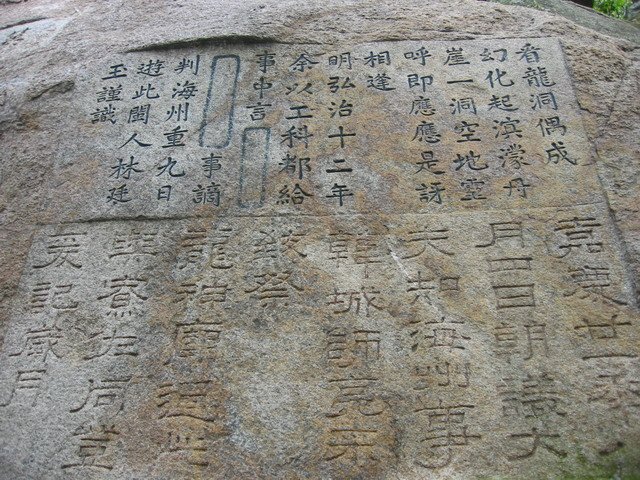 看龍洞偶成
幻化起滨濛丹
崖一洞空地
呼即應應是訝
相逢
明弘治十二年
余以工科都給
事中言
事謫
判海州重九日
遊此閩人林廷
玉謹識
嘉慶廿
日朝議大
夫知海州事
韓城師亮采
致祭
龍神廟過此
與寮友同登
爰記歲月